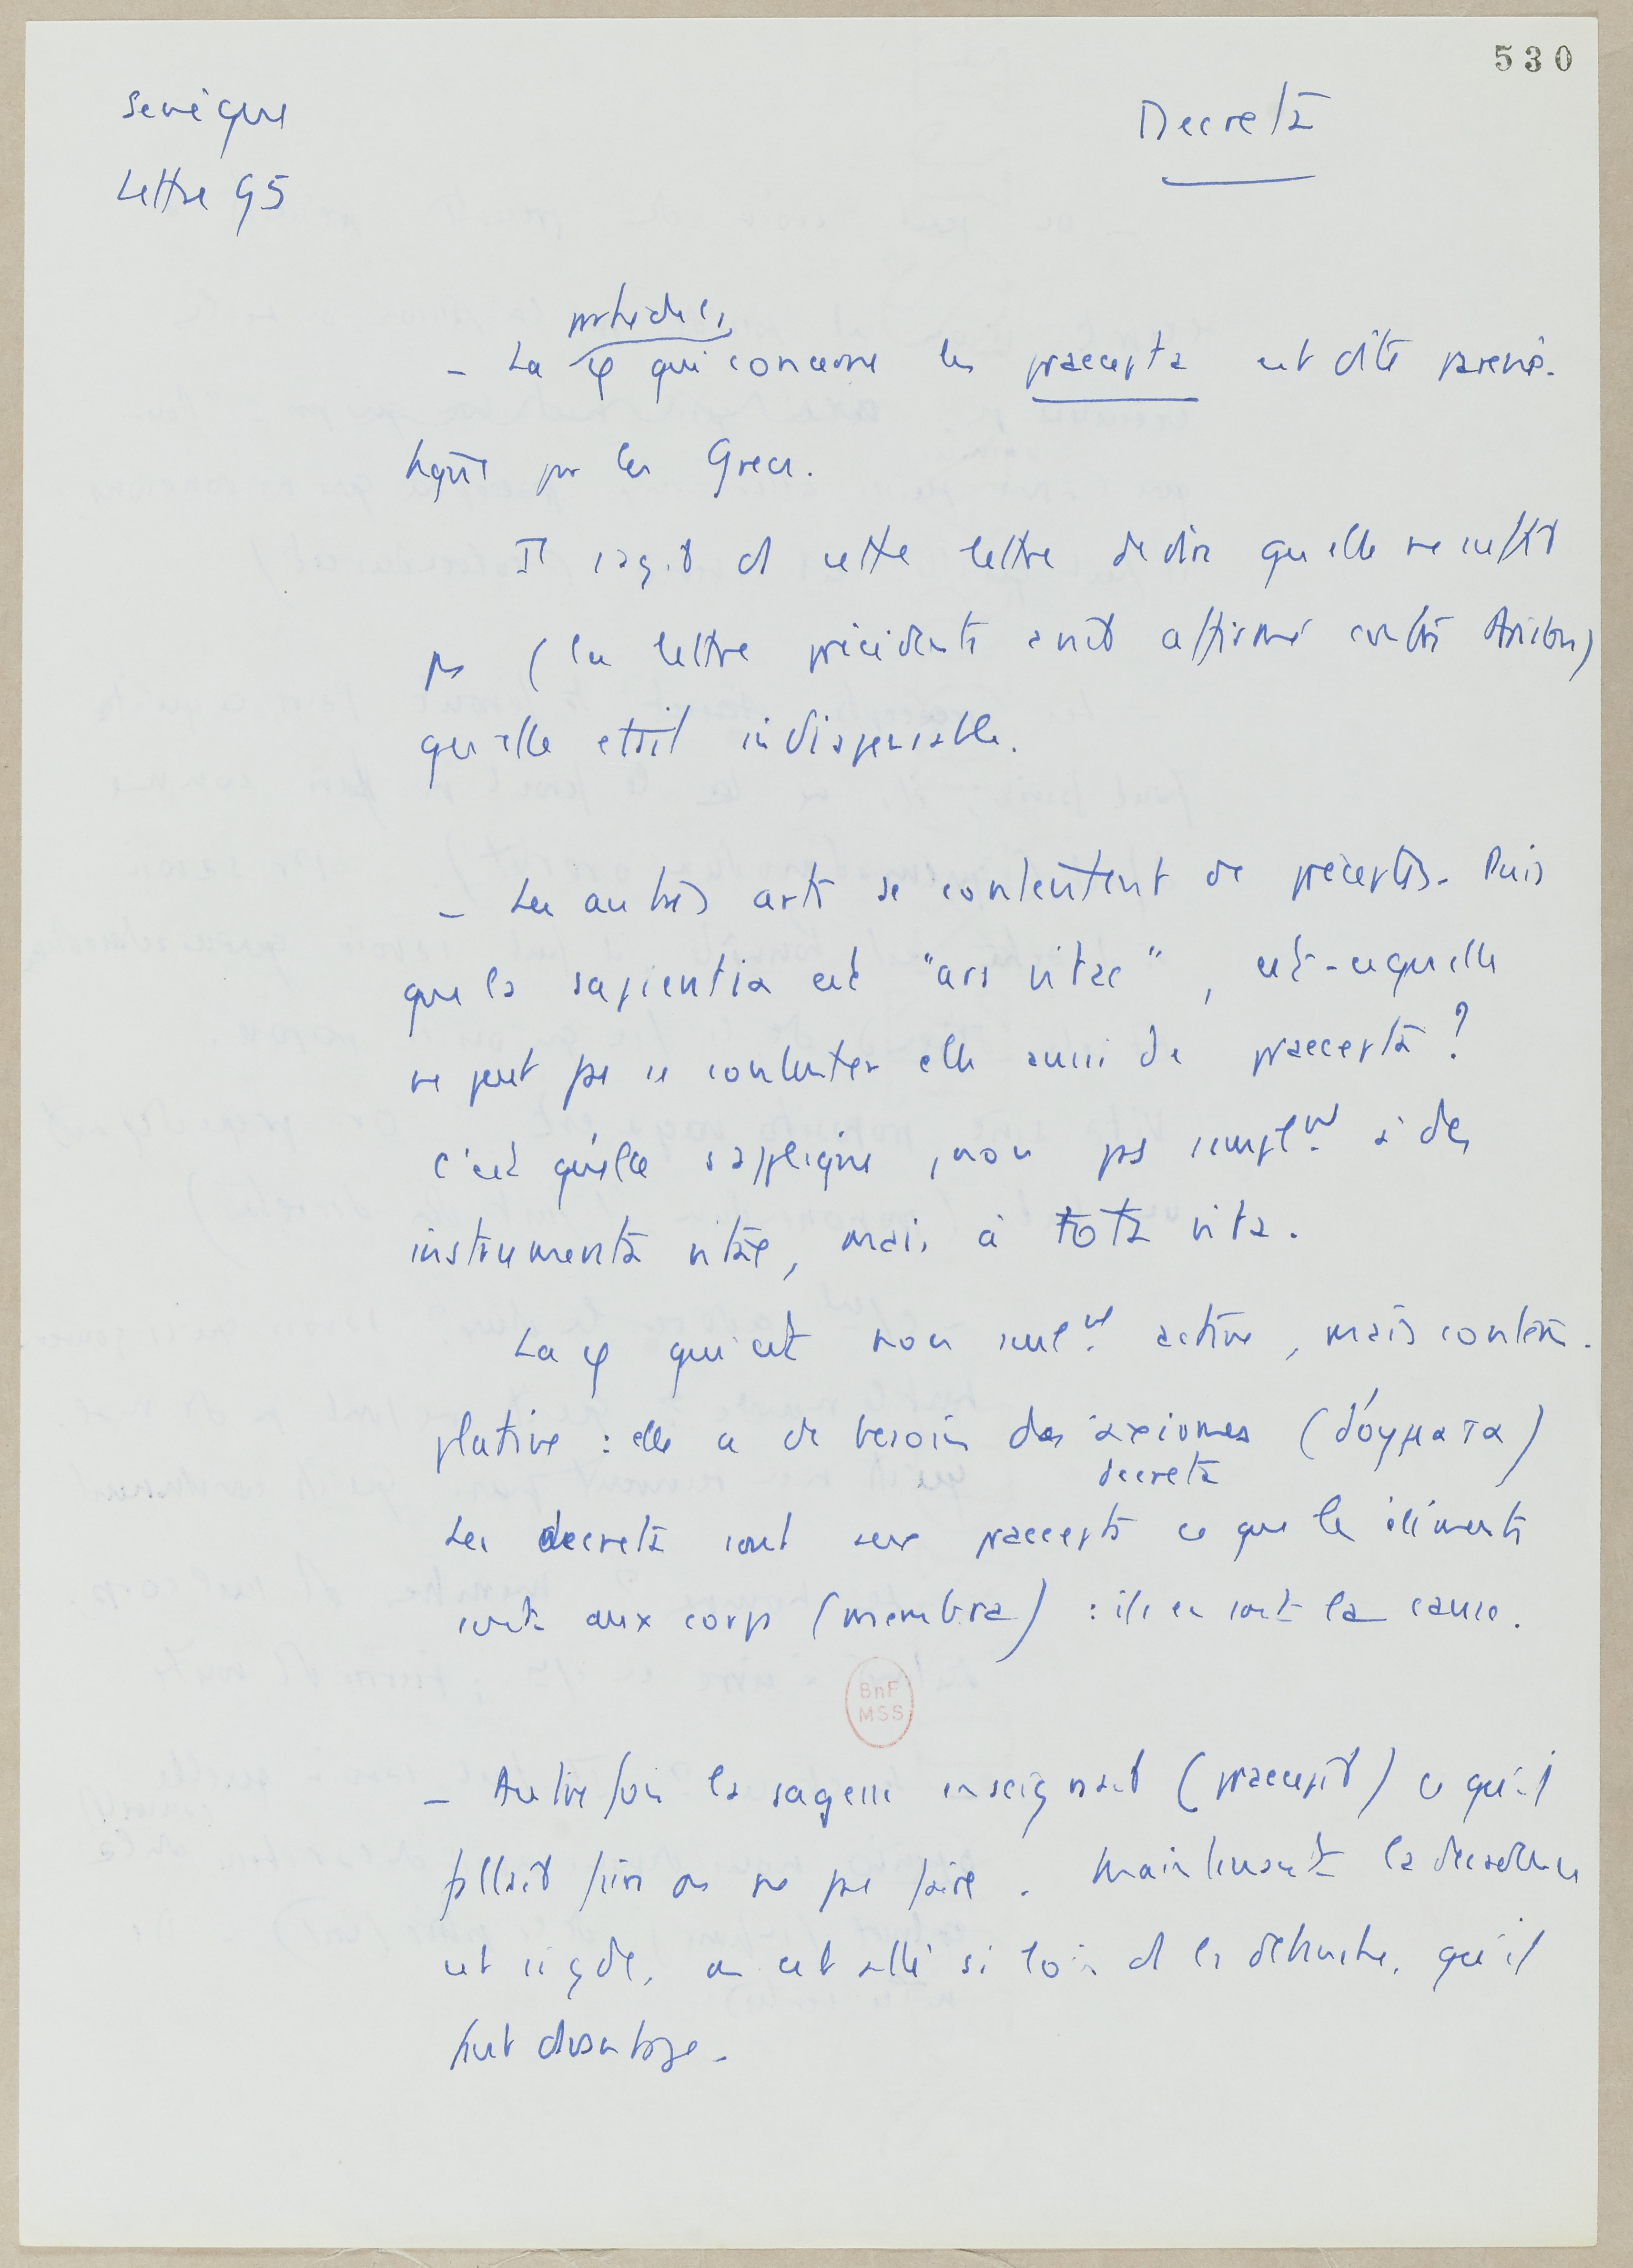 530
Sénèque
Decreta
Lettre 95
partie de la
- La φ qui concerne les praecepta est dite paréné-
tique par les Grecs.
Il s'agit ds cette lettre de dire qu'elle ne suffit
pas (la lettre précédente avait affirmé contre Ariston)
qu'elle était indispensable.
- Les autres arts se contentent de préceptes. Puis
que la sapientia est "ars vitae", est-ce qu'elle
ne peut pas se contenter elle aussi de praecepta ?
C'est qu'elle s'applique, non pas simplmt à des
instrumenta vitae, mais à tota vita.
La φ qui est non seulmt active, mais contem-
plative : elle a de besoin des axiomes (δόγματα)
decreta
Les decreta sont aux praecepta ce que les éléments
sont aux corps (membra) : ils en sont la cause.
BnF
MSS
- Autrefois la sagesse enseignait (praecepit) ce qu'il
fallait faire ou ne pas faire. Maintenant la décadence
est si gde, on est allé si loin ds la débauche, qu'il
faut davantage.